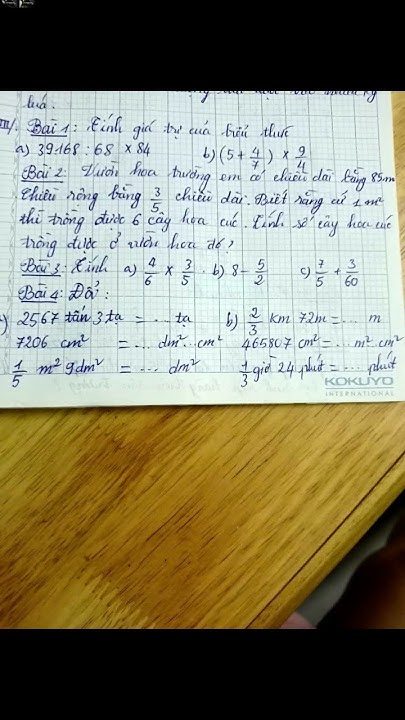 lúa.
III/ Bài 1: Tính giá trị của biểu thức
a) 39168 : 68 × 84 b) (5 + 4/7) × 9/4
Bài 2: Vườn hoa trường em có chiều dài bằng 85m
Chiều rộng bằng 3/5 chiều dài. Biết rằng cứ 1m²
thì trồng được 6 cây hoa cúc. Tính số cây hoa cúc
trồng được ở vườn hoa đó?
Bài 3: Tính a) 4/6 × 3/5 . b) 8 - 5/2 c) 7/5 + 3/60
Bài 4: Đổi:
a) 2567 tấn 3 tạ = ... tạ b) 2/3 km 72m = ... m
7206 cm² = ... dm² ... cm² 465807 cm² = ... m² cm²
1/5 m² 9dm² = ... dm² 1/3 giờ 24 phút = ... phút
KOKUYO
INTERNATIONAL